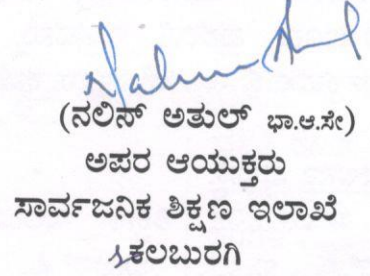 (ನಲಿನ್ ಅತುಲ್ ಭಾ.ಆ.ಸೇ)
ಅಪರ ಆಯುಕ್ತರು
ಸಾರ್ವಜನಿಕ ಶಿಕ್ಷಣ ಇಲಾಖೆ
ಕಲಬುರಗಿ